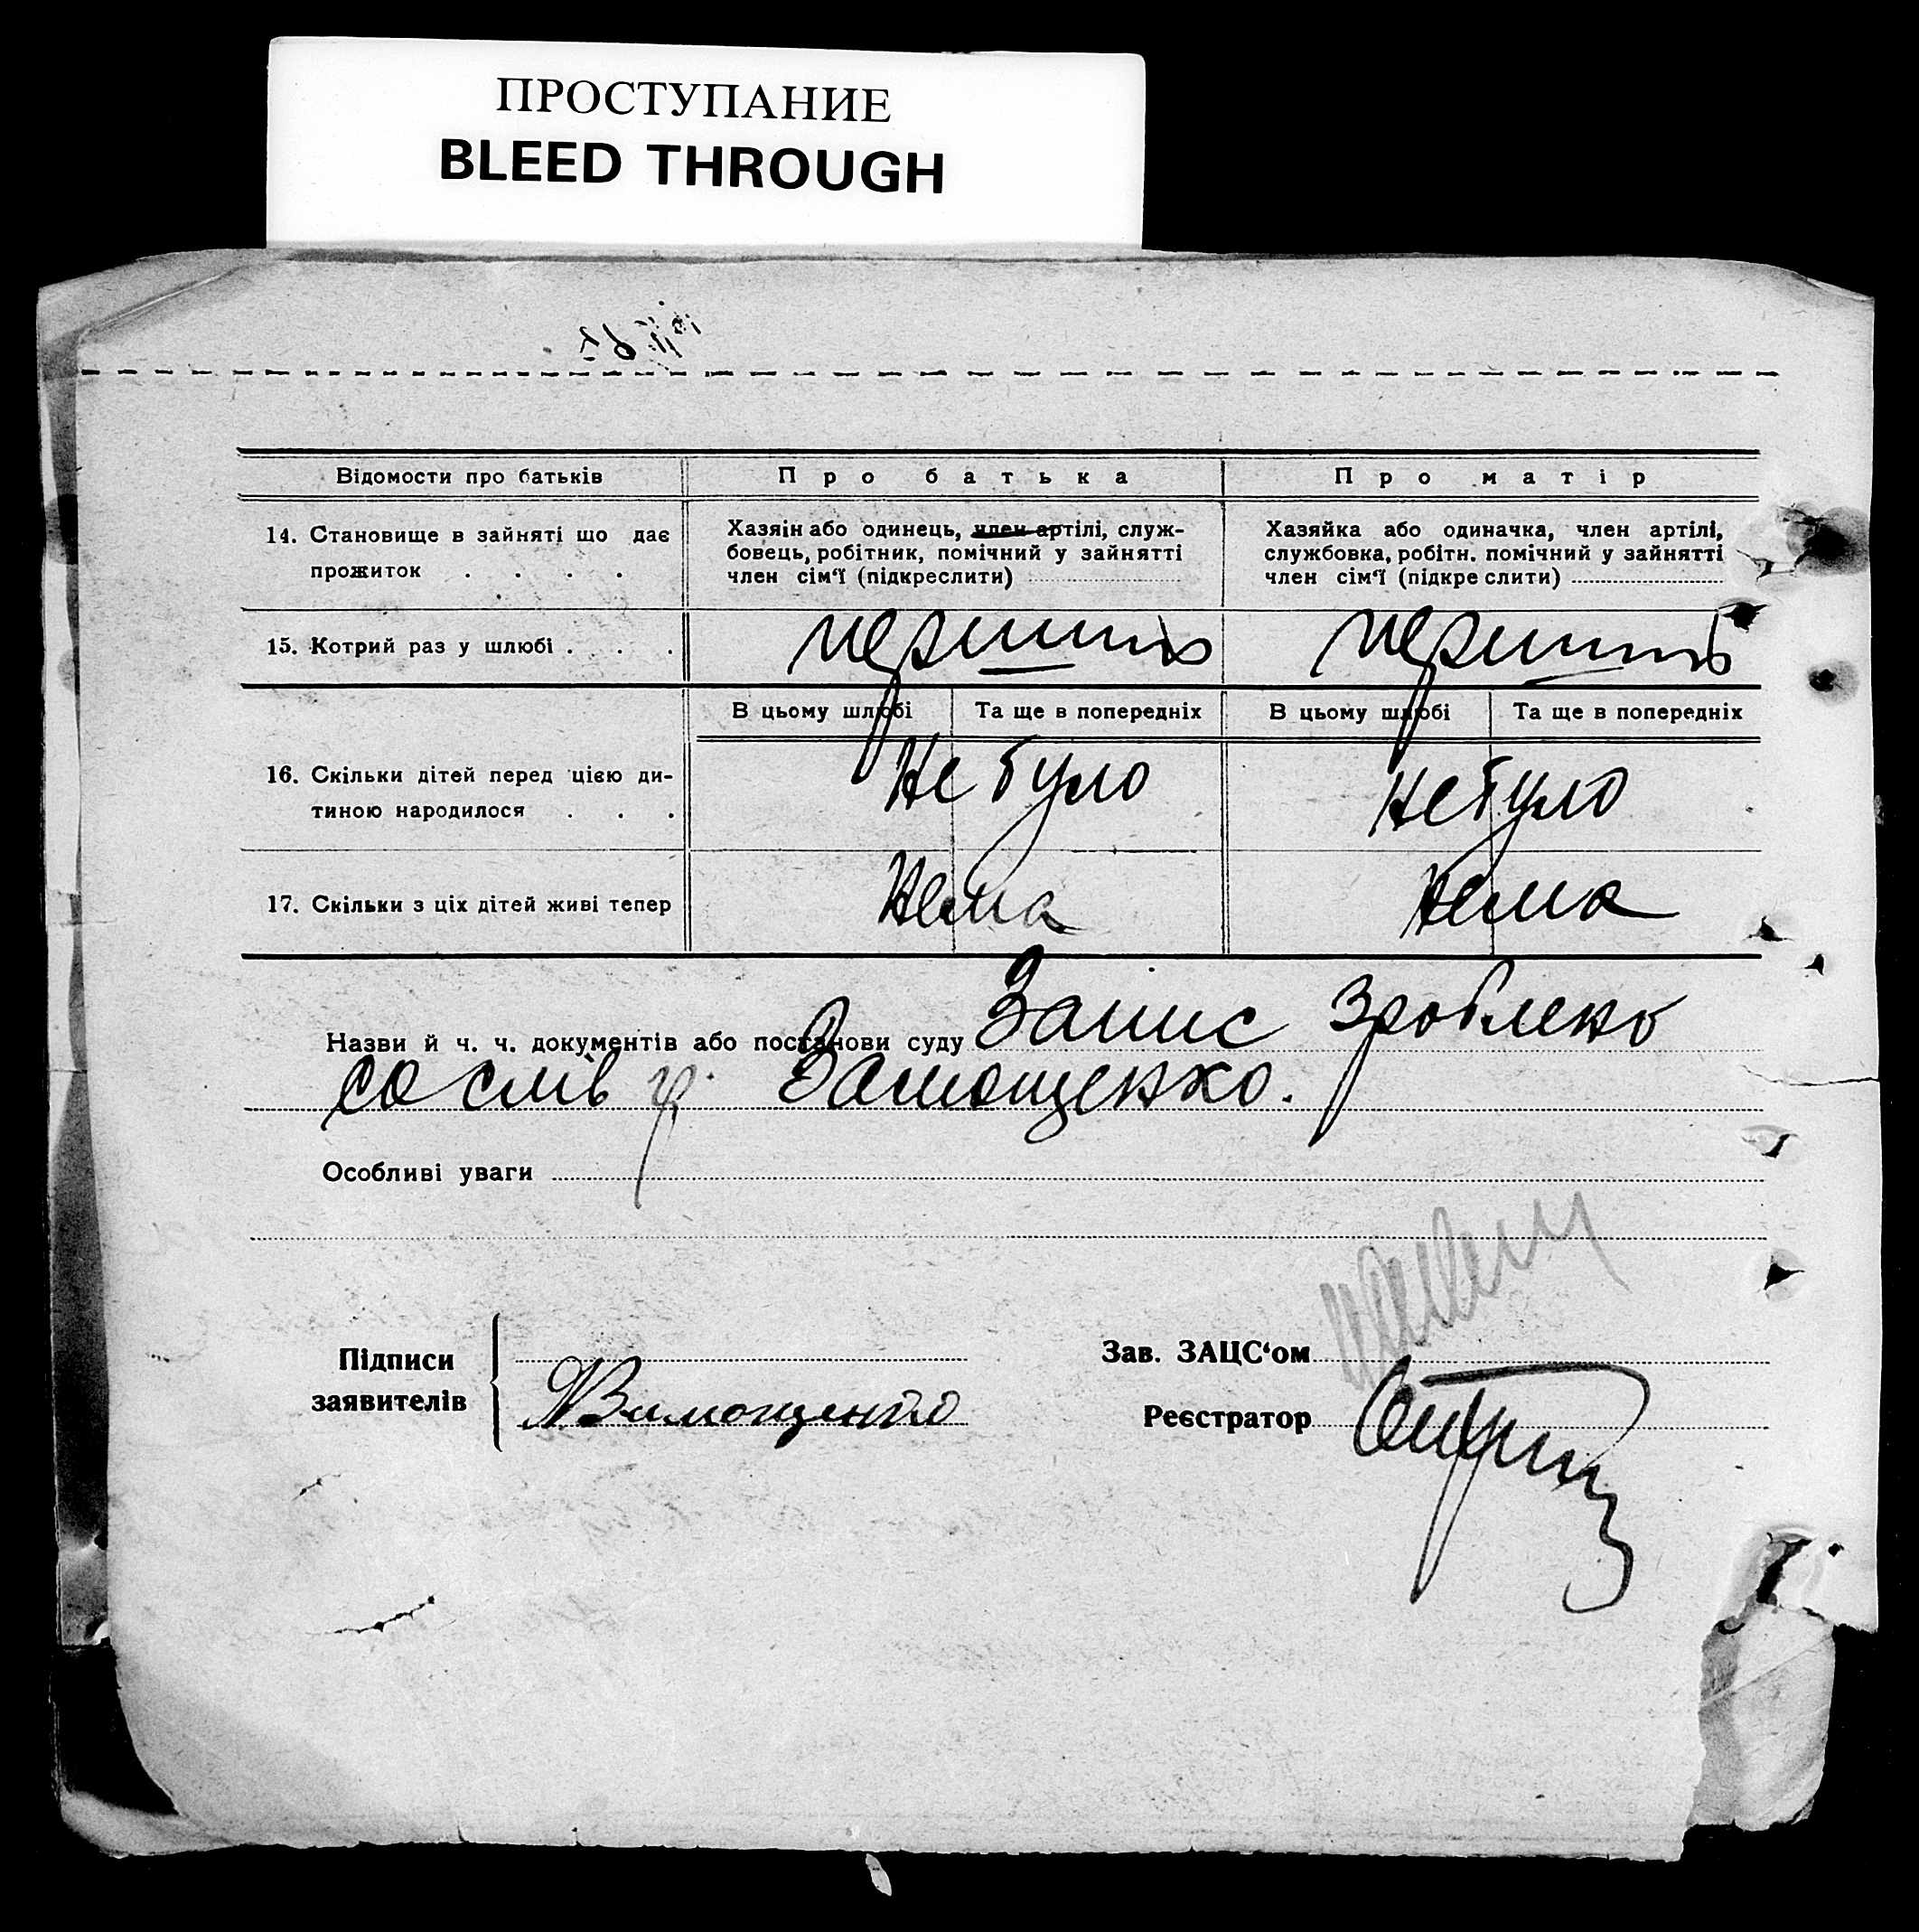 ПРОСТУПАНИЕ
BLEED THROUGH
Відомости про батьків
Про батька
Про матір
14. Становище в зайняті що дає
прожиток . . . .
Хазяін або одинець, член артілі, служ-
бовець, робітник, помічний у зайнятті
член сім‘ї (підкреслити)
Хазяйка або одиначка, член артілі,
службовка, робітн. помічний у зайнятті
член сім‘ї (підкре слити)
15. Котрий раз у шлюбі . . .
перший
перший
В цьому шлюбі
Та ще в попередніх
В цьому шлюбі
Та ще в попередніх
16. Скільки дітей перед цією ди-
тиною народилося . . .
не було
не було
17. Скільки з ціх дітей живі тепер
нема
нема
Назви й ч. ч. документів або постанови суду Запис зроблено
со слів гр. Замощенко.
Особливі уваги
Підписи
заявителів
Замощенко
Зав. ЗАЦС‘ом
Реєстратор